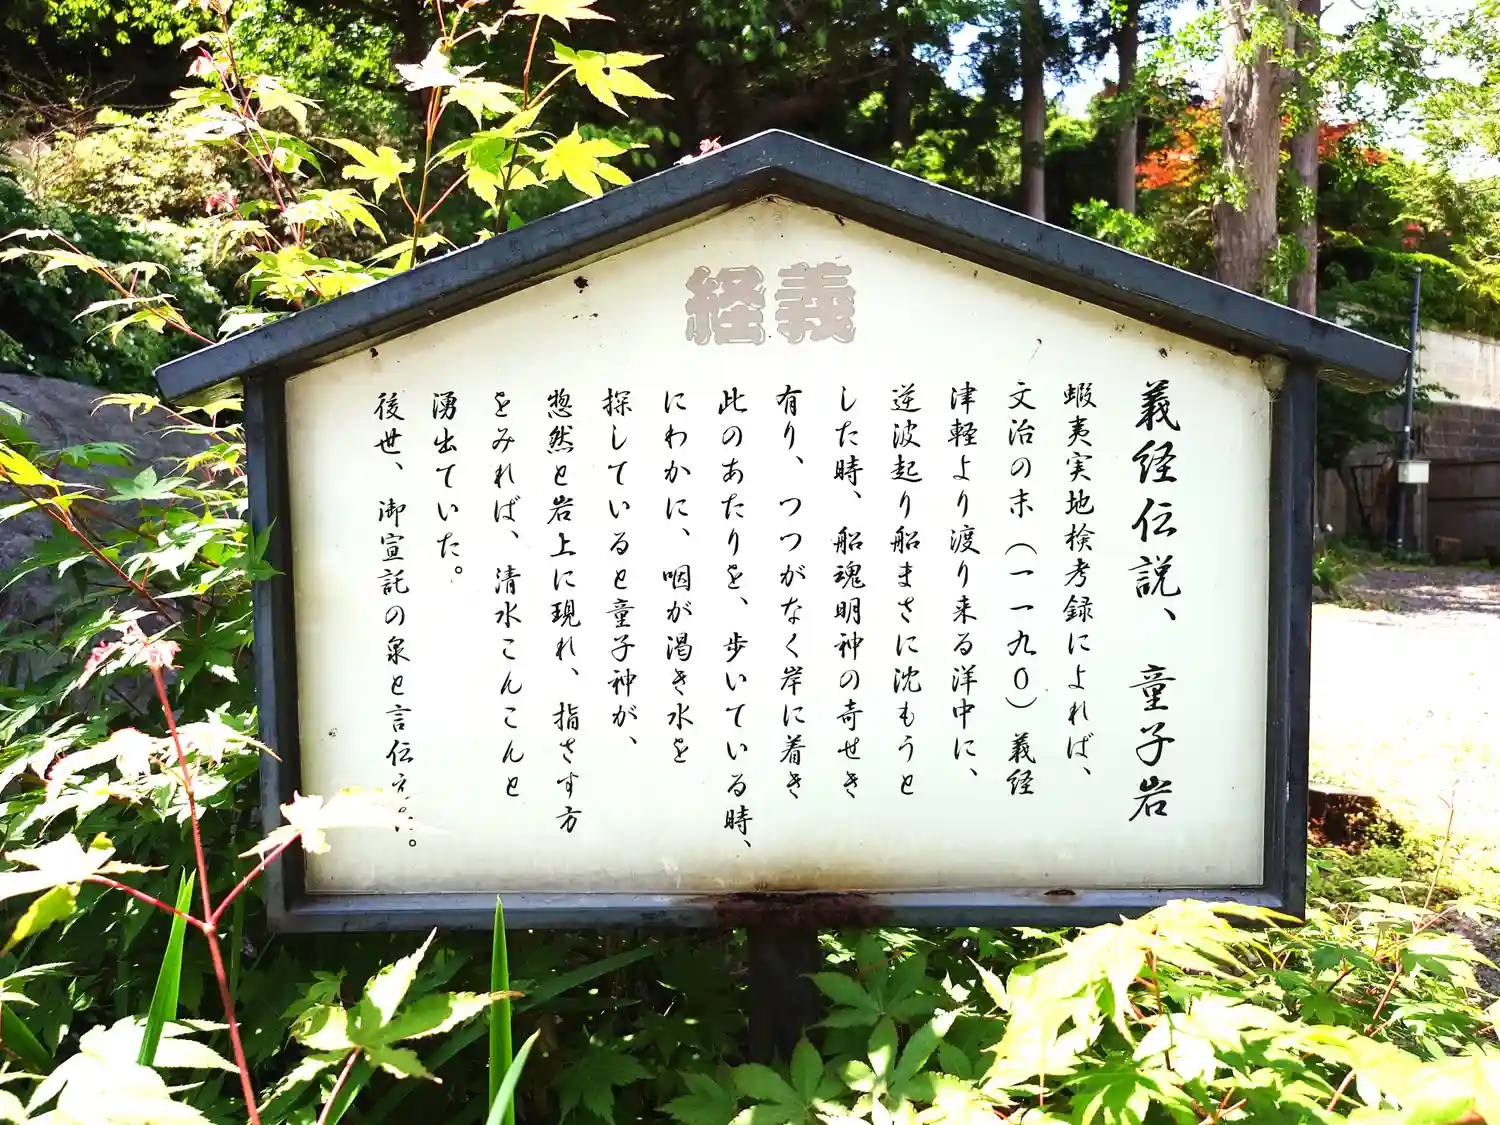 義経
義経伝説、童子岩
蝦夷実地検考録によれば、
文治の末（一一九０）義経
津軽より渡り来る洋中に、
逆波起り船まさに沈もうと
した時、船魂明神の奇せき
有り、つつがなく岸に着き
此のあたりを、歩いている時、
にわかに、咽が渇き水を
探していると童子神が、
惣然と岩上に現れ、指さす方
をみれば、清水こんこんと
湧出ていた。
後世、御宣託の泉と言伝えた。